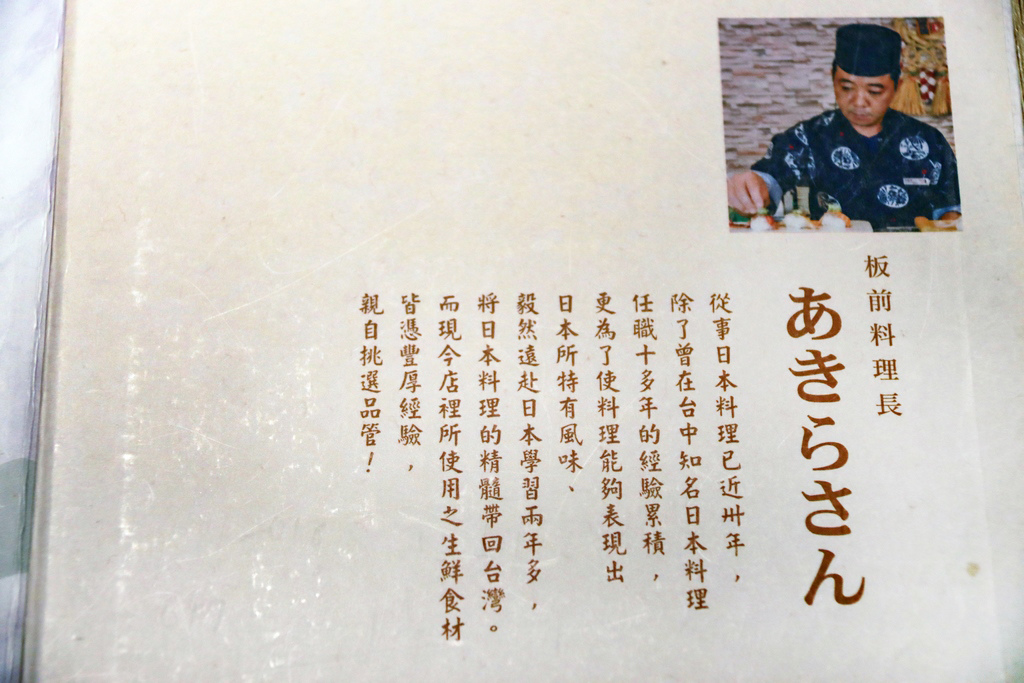 板前料理長
あきらさん
從事日本料理已近卅年，
除了曾在台中知名日本料理
任職十多年的經驗累積，
更為了使料理能夠表現出
日本所特有風味、
毅然遠赴日本學習兩年多，
將日本料理的精髓帶回台灣。
而現今店裡所使用之生鮮食材
皆憑豐厚經驗，
親自挑選品管！